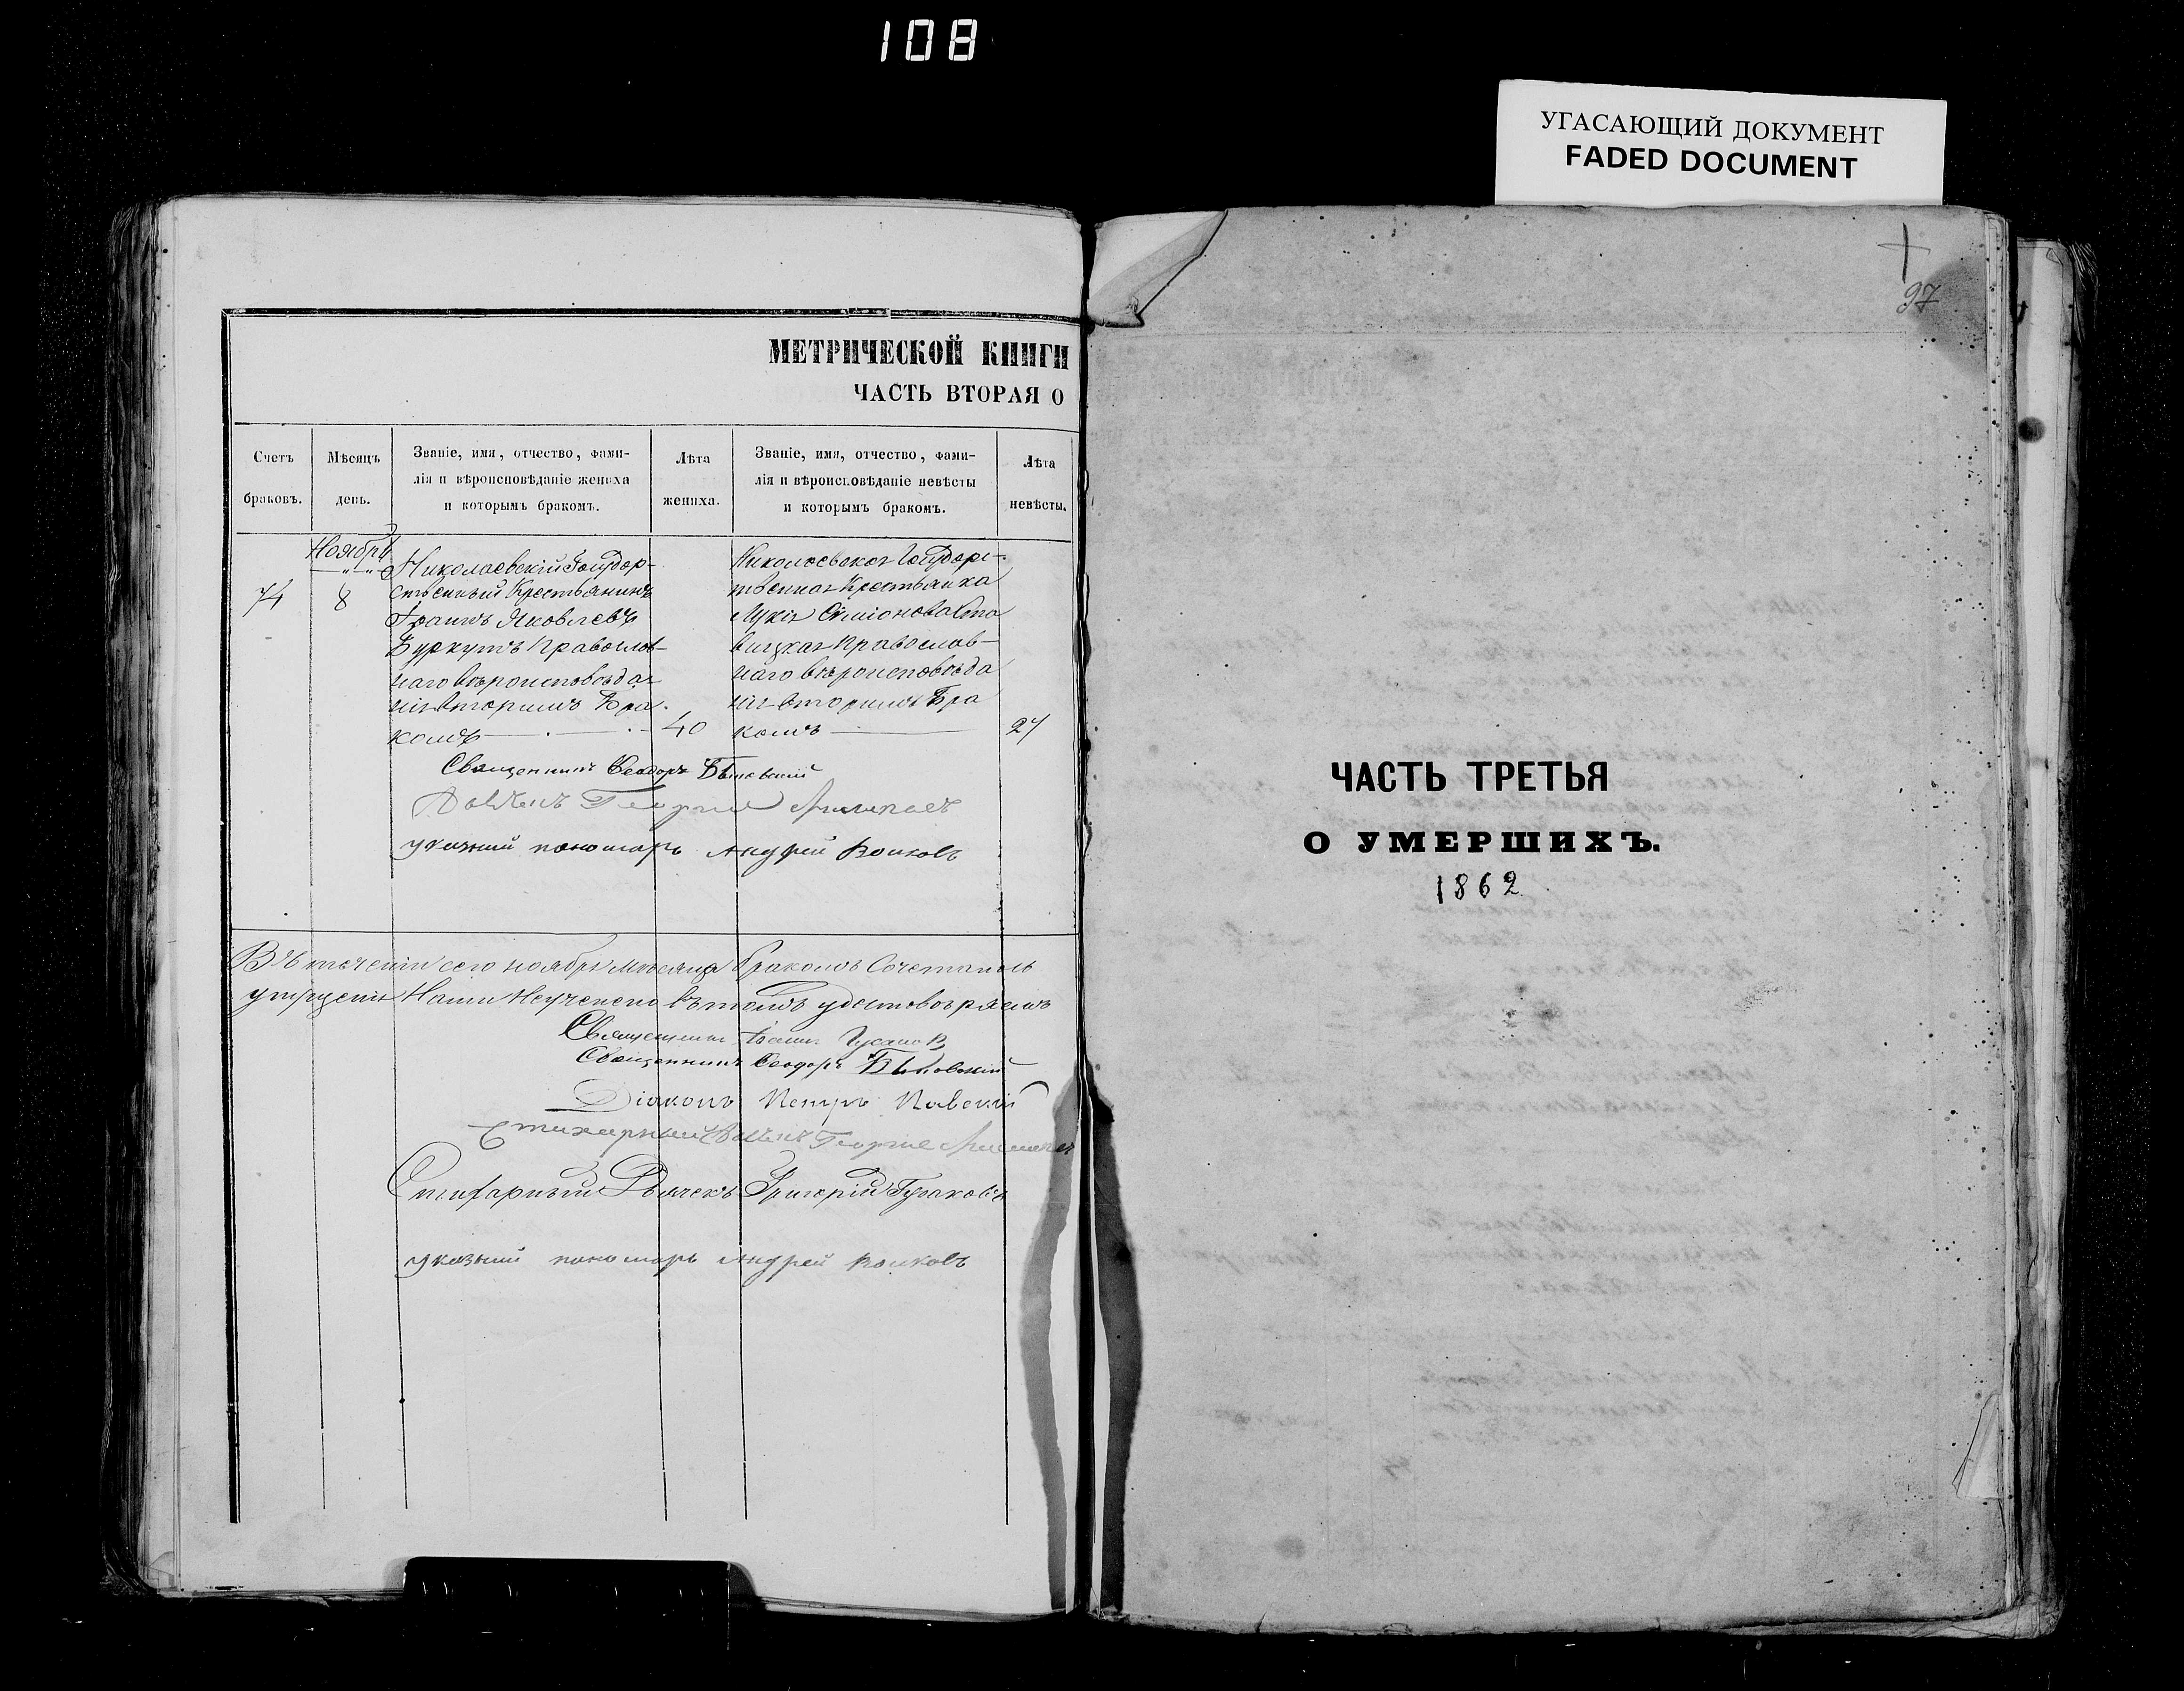 108
УГАСАЮЩИЙ ДОКУМЕНТ
FADED DOCUMENT
97
МЕТРИЧЕСКОЙ КНИГИ
ЧАСТЬ ВТОРАЯ О
Счетъ браковъ.
Мѣсяцъ день.
Званіе, имя, отчество, фами-
лія и вѣроисповѣданіе жениха
и которымъ бракомъ.
Лѣта жениха.
Званіе, имя, отчество, фами-
лія и вѣроисповѣданіе невѣсты
и которымъ бракомъ.
Лѣта невѣсты.
Ноябрь
74
8
Николаевскій Государ-
ственный Крестьянинъ
Яковлевъ
Буркутъ Православ-
наго вѣроисповѣда-
нія вторимъ Бра-
комъ
40
Николаевская Государс-
твенная Крестьянка
Симіонова
Православ-
наго вѣроисповѣда
нія вторимъ Бра
комъ
27
Священникъ Феодоръ
Георгіе
указный пономарь Андрей Волковъ
Въ теченіи сего ноября мѣсяца бракомъ Сочетались
въ томъ удостовѣряемъ
Священникъ
Священникъ Феодоръ
Діаконъ Петръ Павскій
Стихарный Георгіе
Стихарный Дьячекъ Григорій
указный пономарь Андрей Волковъ
ЧАСТЬ ТРЕТЬЯ
О УМЕРШИХЪ.
1862